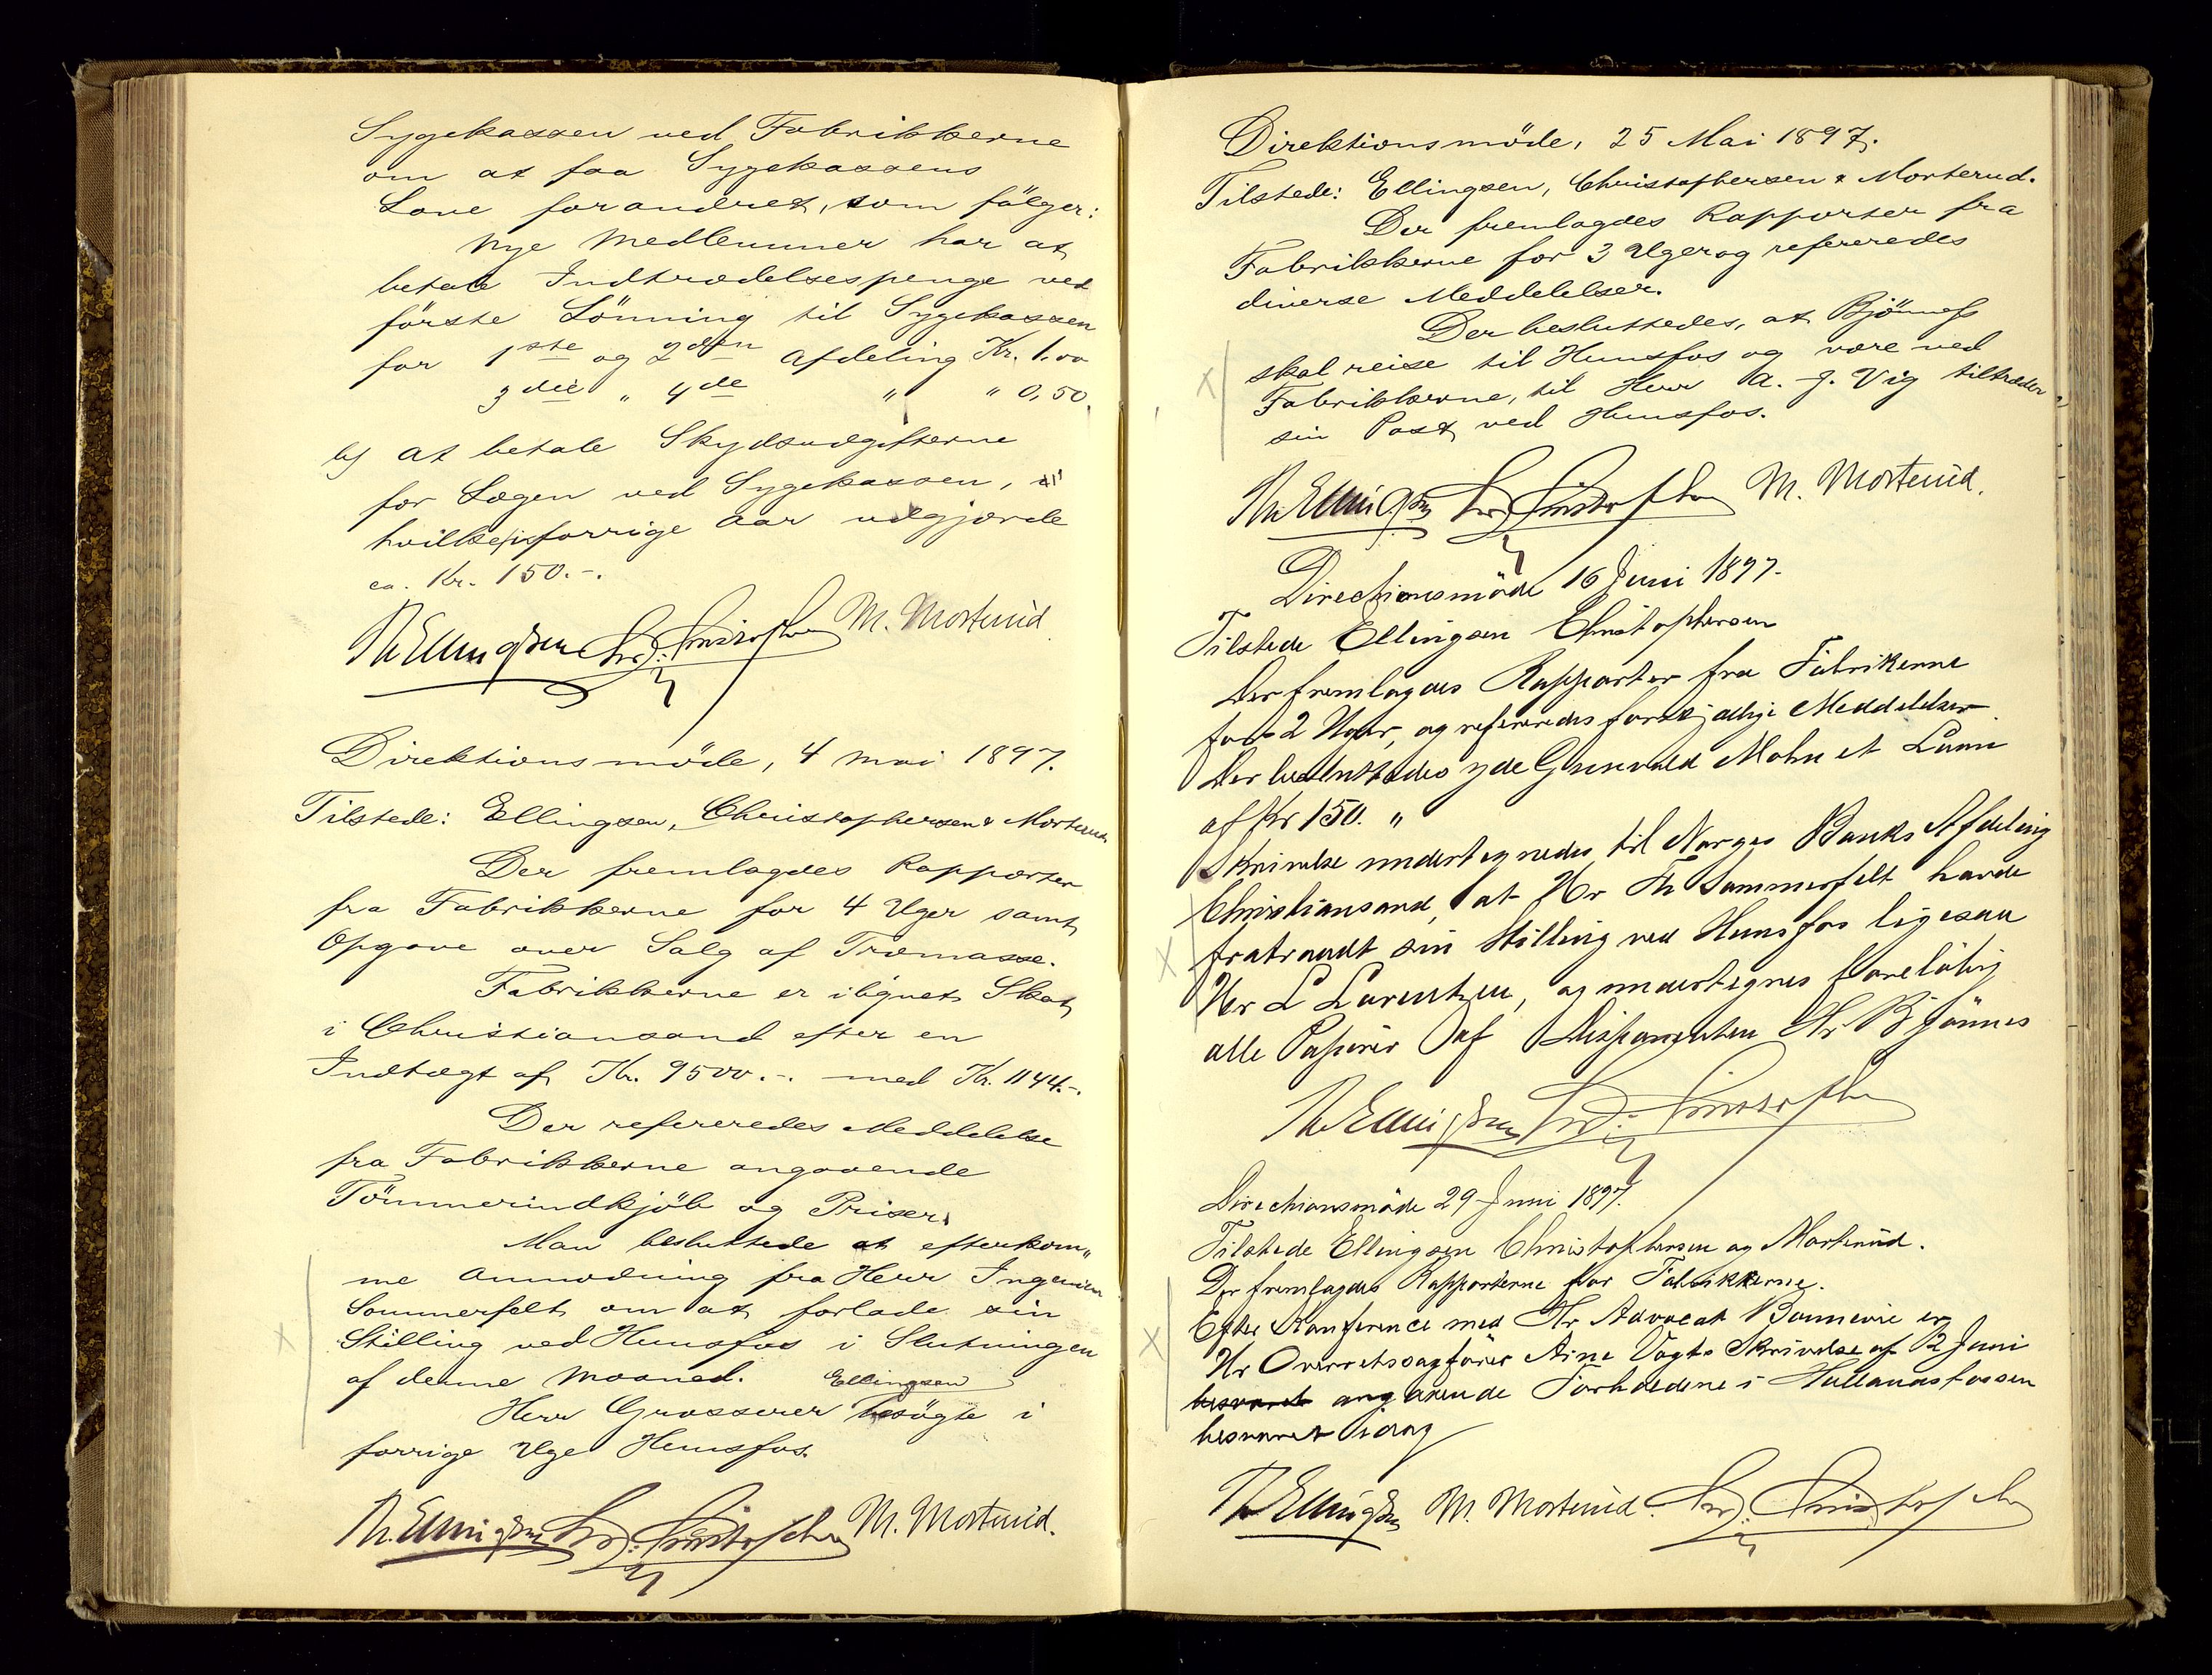 Sygekassen ved Fabrikkerne
om at faa Sygekassens
Love forandret, som fölger:
Nye Medlemmer har at
betale Indtrædelsespenge ved
förste Lönning til Sygekassen
for 1ste og 2den Afdeling Kr. 1.00
3die „ 4de „ „ 0,50.
b) at betale Skydsudgifterne
for Lægen ved Sygekassen,
hvilke forrige Aar udgjorde
ca. Kr. 150.-.
Th Ellingsen Chr. Christophersen M. Morterud
Direktionsmöde, 4 Mai 1897.
Tilstede: Ellingsen, Christophersen & Morterud
Der fremlagdes Rapporter
fra Fabrikkerne for 4 Uger samt
Opgave over Salg af Træmasse.
Fabrikkerne er ilignet Skat
i Christiansand efter en
Indtægt af Kr. 9500.-. med Kr. 1144.-.
Der refereredes Meddelelse
fra Fabrikkerne angaaende
Tömmerindkjöb og Priser.
Man besluttede at efterkom„
me Anmodning fra Herr Ingeniör
Sommerfelt om at forlade sin
Stilling ved Hunsfos i Slutningen
af denne Maaned.
Herr Grosserer Ellingsen besögte i
forrige Uge Hunsfos.
Th. Ellingsen Chr. Christophersen M. Morterud.
Direktionsmöde, 25 Mai 1897.
Tilstede: Ellingsen, Christophersen & Morterud.
Der fremlagdes Rapporter fra
Fabrikkerne for 3 Uger og refereredes
diverse Meddelelser.
Der besluttedes, at Björnnes
skal reise til Hunsfos og være ved
Fabrikkerne, til Herr A. J. Vig tiltræder
sin Post ved Hunsfos.
Th Ellingsen Chr. Christophersen M. Morterud.
Directionsmöde 16 Juni 1897.
Tilstede Ellingsen Christophersen
Der fremlagdes Rapporter fra Fabrikerne
for 2 Uger, og refereredes forskjellige Meddelelser
Der besluttedes yde Grunvald Mohn et Laan
af Kr 150. „
Skrivelse undertegnedes til Norges Banks Afdeling
Christiansand, at Hr Th Sommerfelt havde
fratraadt sin Stilling ved Hunsfos ligesaa
Hr L Lorentzen, og undertegnes forelöbig
alle Papirer af Disponenten Hr Björnnes
Th Ellingsen Chr. Christophersen
Directionsmöde 29 Juni 1897.
Tilstede Ellingsen Christophersen og Morterud.
Der fremlagdes Rapporterne for Fabrikkerne.
Efter Konference med Hr Advocat Bonnevie er
Hr Overretssagförer Arne Vogts Skrivelse af 12 Juni
besvaret angaaende Forholdene i Hallandsfossen
besvaret idag
Th Ellingsen M. Morterud. Chr. Christophersen